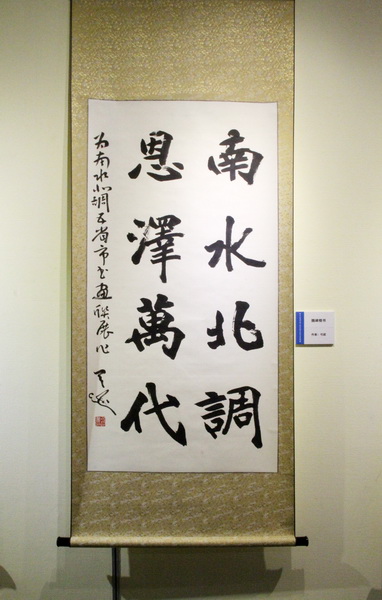 南水北調
恩澤萬代
为南水北調五省市书画聯展作